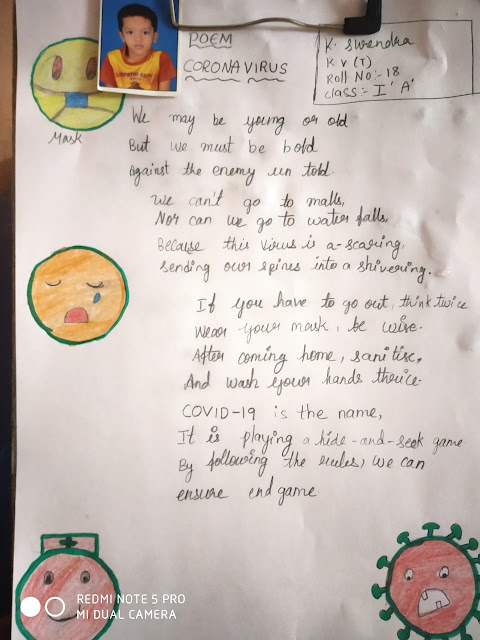 POEM
CORONA VIRUS
K. Swendra
K V (T)
Roll No:- 18
Class :- I 'A'
Mask
We may be young or old
But we must be bold
Against the enemy un told.
We can't go to malls,
Nor can we go to water falls,
Because this virus is a-scaring,
Sending our spines into a shivering.
If you have to go out, think twice
Wear your mask, be wise.
After coming home, sanitise,
And wash your hands therice.
COVID-19 is the name,
It is playing a hide-and-seek game
By following the rules, we can
ensure end game
REDMI NOTE 5 PRO
MI DUAL CAMERA